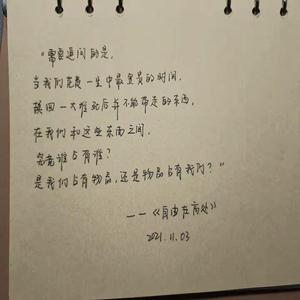 “需要追问的是,
当我们花费一生中最宝贵的时间,
换回一大堆死后并不能带走的东西,
在我们和这些东西之间,
究竟谁占有谁?
是我们占有物品,还是物品占有我们?”
——《自由在高处》
2021.11.03